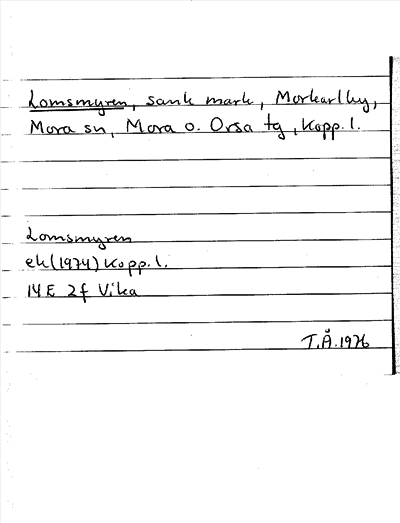 Lomsmyren, sank mark, Morkarlby,
Mora sn, Mora o. Orsa tg, Kopp. l.
Lomsmyren
ek (1974) Kopp. l.
14 E 2f Vika
T.Å. 1976